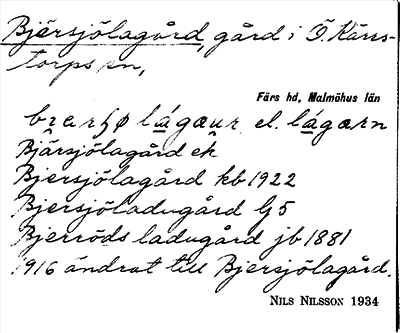 Bjärsjölagård, gård i Ö. Kärrs-
torps sn,
Färs hd, Malmöhus län
bi̯arʃø lágau̯r el. lágærn
Bjärsjölagård ek
Bjersjölagård kb 1922
Bjersjöladugård G5
Bjerröds ladugård jb 1881
1916 ändrat till Bjersjölagård.
NILS NILSSON 1934